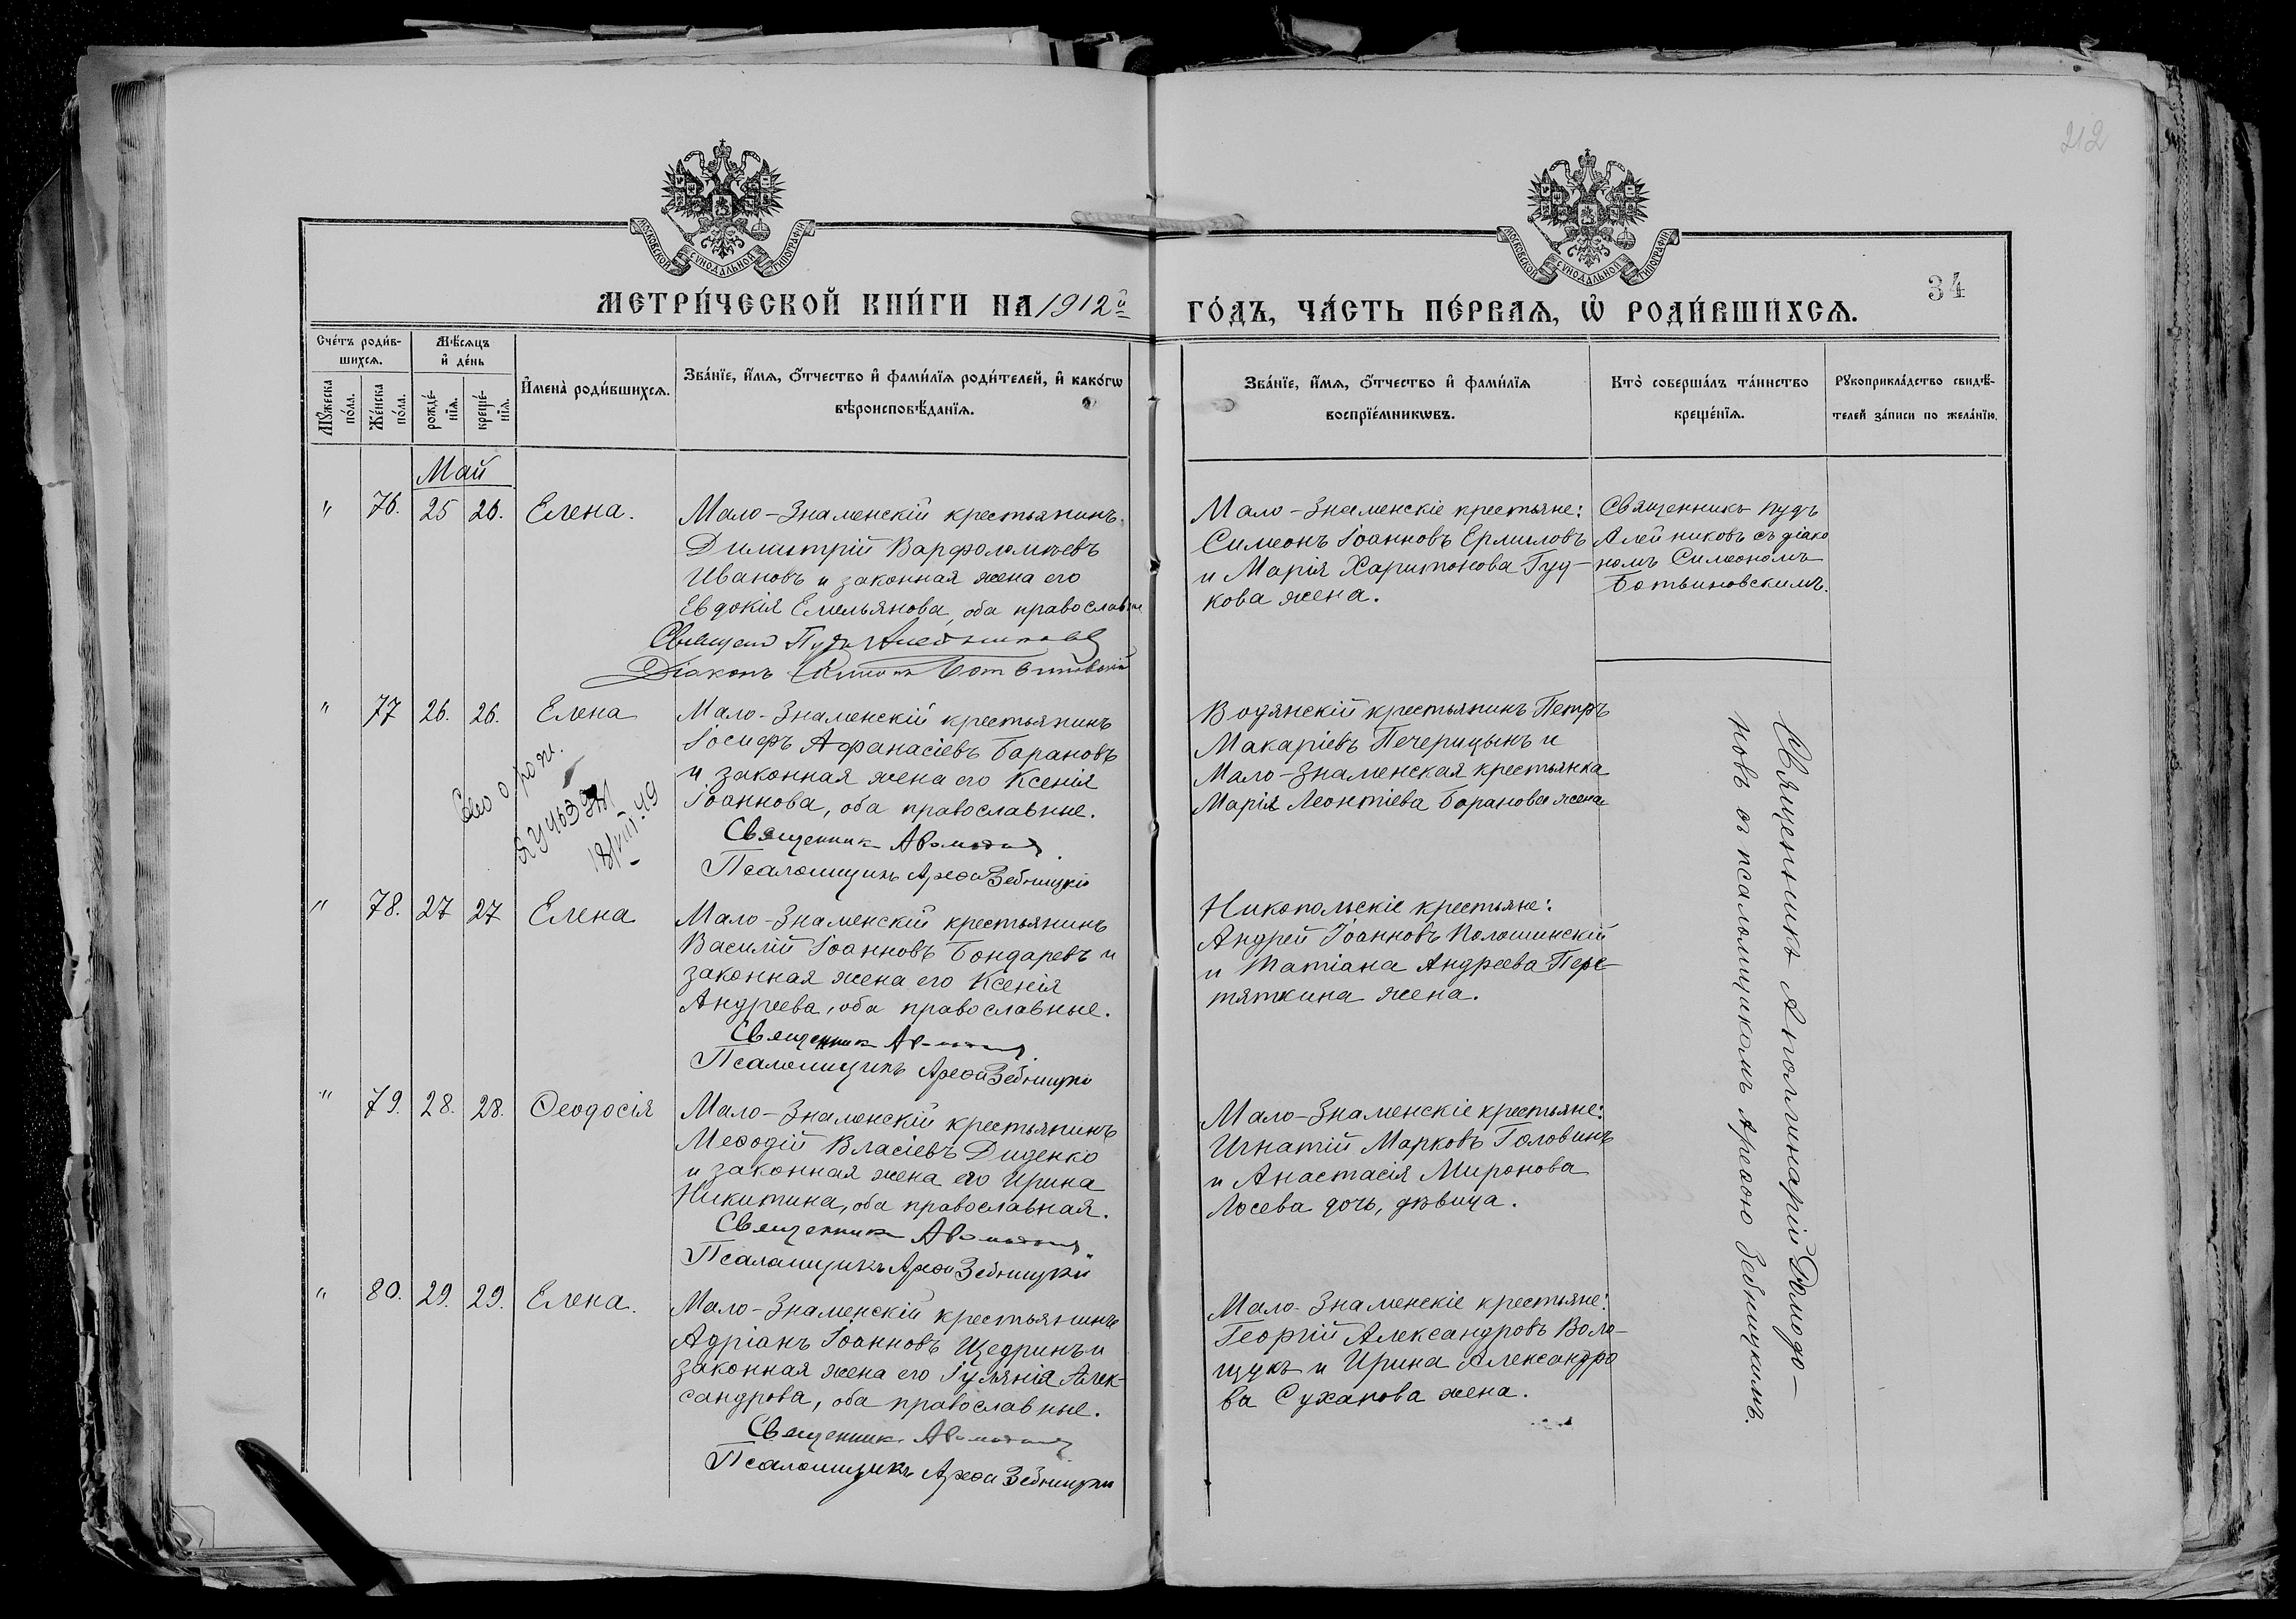 212
МОСКОВСКОЙ СѴНОДАЛЬНОЙ ТИПОГРАФІИ
МОСКОВСКОЙ СѴНОДАЛЬНОЙ ТИПОГРАФІИ
34
МЕТРИ́ЧЕСКОЙ КНИ́ГИ НА 1912й
ГО́ДЪ, ЧА́СТЬ ПЕ́РВАѦ, Ѡ҆ РОДИ́ВШИХСѦ.
Сче́тъ роди́в-
шихсѧ.
Мꙋ́жеска
по́ла.
Же́нска
по́ла.
Мѣ́сѧцъ
и҆ де́нь
рожде́-
нїѧ.
креще́-
нїѧ.
И҆мена̀ роди́вшихсѧ.
Зва́нїе, и҆́мѧ, ѻ҆́тчество и҆ фами́лїѧ роди́телей, и҆ како́гѡ
вѣроисповѣ́данїѧ.
Зва́нїе, и҆́мѧ, ѻ҆́тчество и҆ фами́лїѧ
воспрїе́мникѡвъ.
Кто̀ соверша́лъ та́инство
креще́нїѧ.
Рꙋкоприкла́дство свидѣ́-
телей за́писи по жела́нїю.
Май
" 76. 25 26. Елена.
Мало-Знаменскій крестьянинъ
Димитрій Варфоломѣевъ
Ивановъ и законная жена его
Евдокія Емельянова, оба православные
Священ Пудъ Алейниковъ
Діаконъ Симеонъ Ботвиновскій
Мало-Знаменскіе крестьяне:
Симеонъ Іоанновъ Ермиловъ
и Марія Харитонова Гуд-
кова жена.
Священникъ Пудъ
Алейниковъ съ діако
номъ Симеономъ
Ботвиновскимъ.
" 77 26. 26. Елена
Мало-Знаменскій крестьянинъ
Іосифъ Афанасіевъ Барановъ
и законная жена его Ксенія
Іоаннова, оба православные.
Священникъ А Домодо
Псаломщикъ Арефа Зебницкій
о рож.
49
Водянскій крестьянинъ Петръ
Макаріевъ Печерицынъ и
Мало-Знаменская крестьянка
Марія Леонтіева Баранова жена
Священникъ Апполинарій Домодо-
новъ съ псаломщикомъ Арефою Зебницкимъ.
" 78. 27 27 Елена
Мало-Знаменскій крестьянинъ
Василій Іоанновъ Бондаревъ и
законная жена его Ксенія
Андреева, оба православные.
Священникъ А
Псаломщикъ Арефа Зебницкій
Никопольскіе крестьяне:
Андрей Іоанновъ Полошинскій
и Татіана Андреева Пере-
тяткина жена.
" 79. 28. 28. Ѳеодосія
Мало-Знаменскій крестьянинъ
Меѳодій Власіевъ Диденко
и законная жена его Ирина
Никитина, оба православная.
Священникъ А
Псаломщикъ Арефа Зебницкій
Мало-Знаменскіе крестьяне:
Игнатій Марковъ Головинъ
и Анастасія Миронова
Лосева дочь, дѣвица.
" 80. 29. 29. Елена.
Мало-Знаменскій крестьянинъ
Адріанъ Іоанновъ Щедринъ и
законная жена его Іуліянія Алек-
сандрова, оба православные.
Священникъ А
Псаломщикъ Арефа Зебницкій
Мало-Знаменскіе крестьяне:
Георгій Александровъ Воло-
щукъ и Ирина Александро
ва Суханова жена.